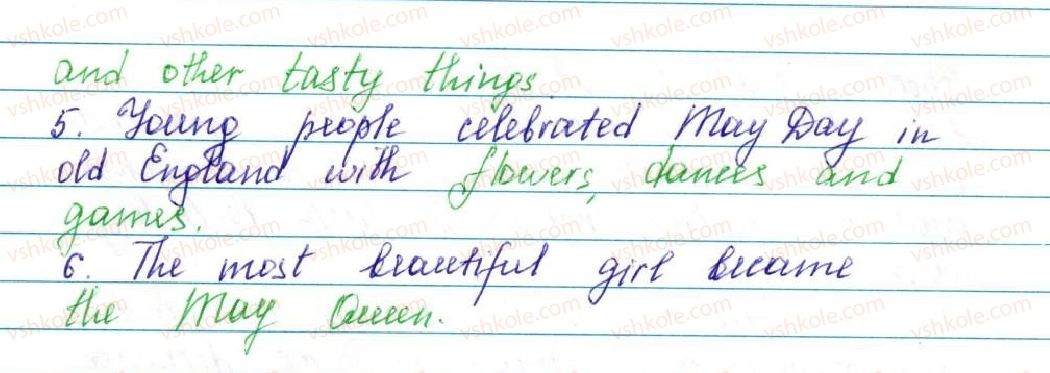 and other tasty things
5. Young people celebrated May Day in
old England with flowers, dances and
games.
6. The most beautiful girl became
the May Queen.